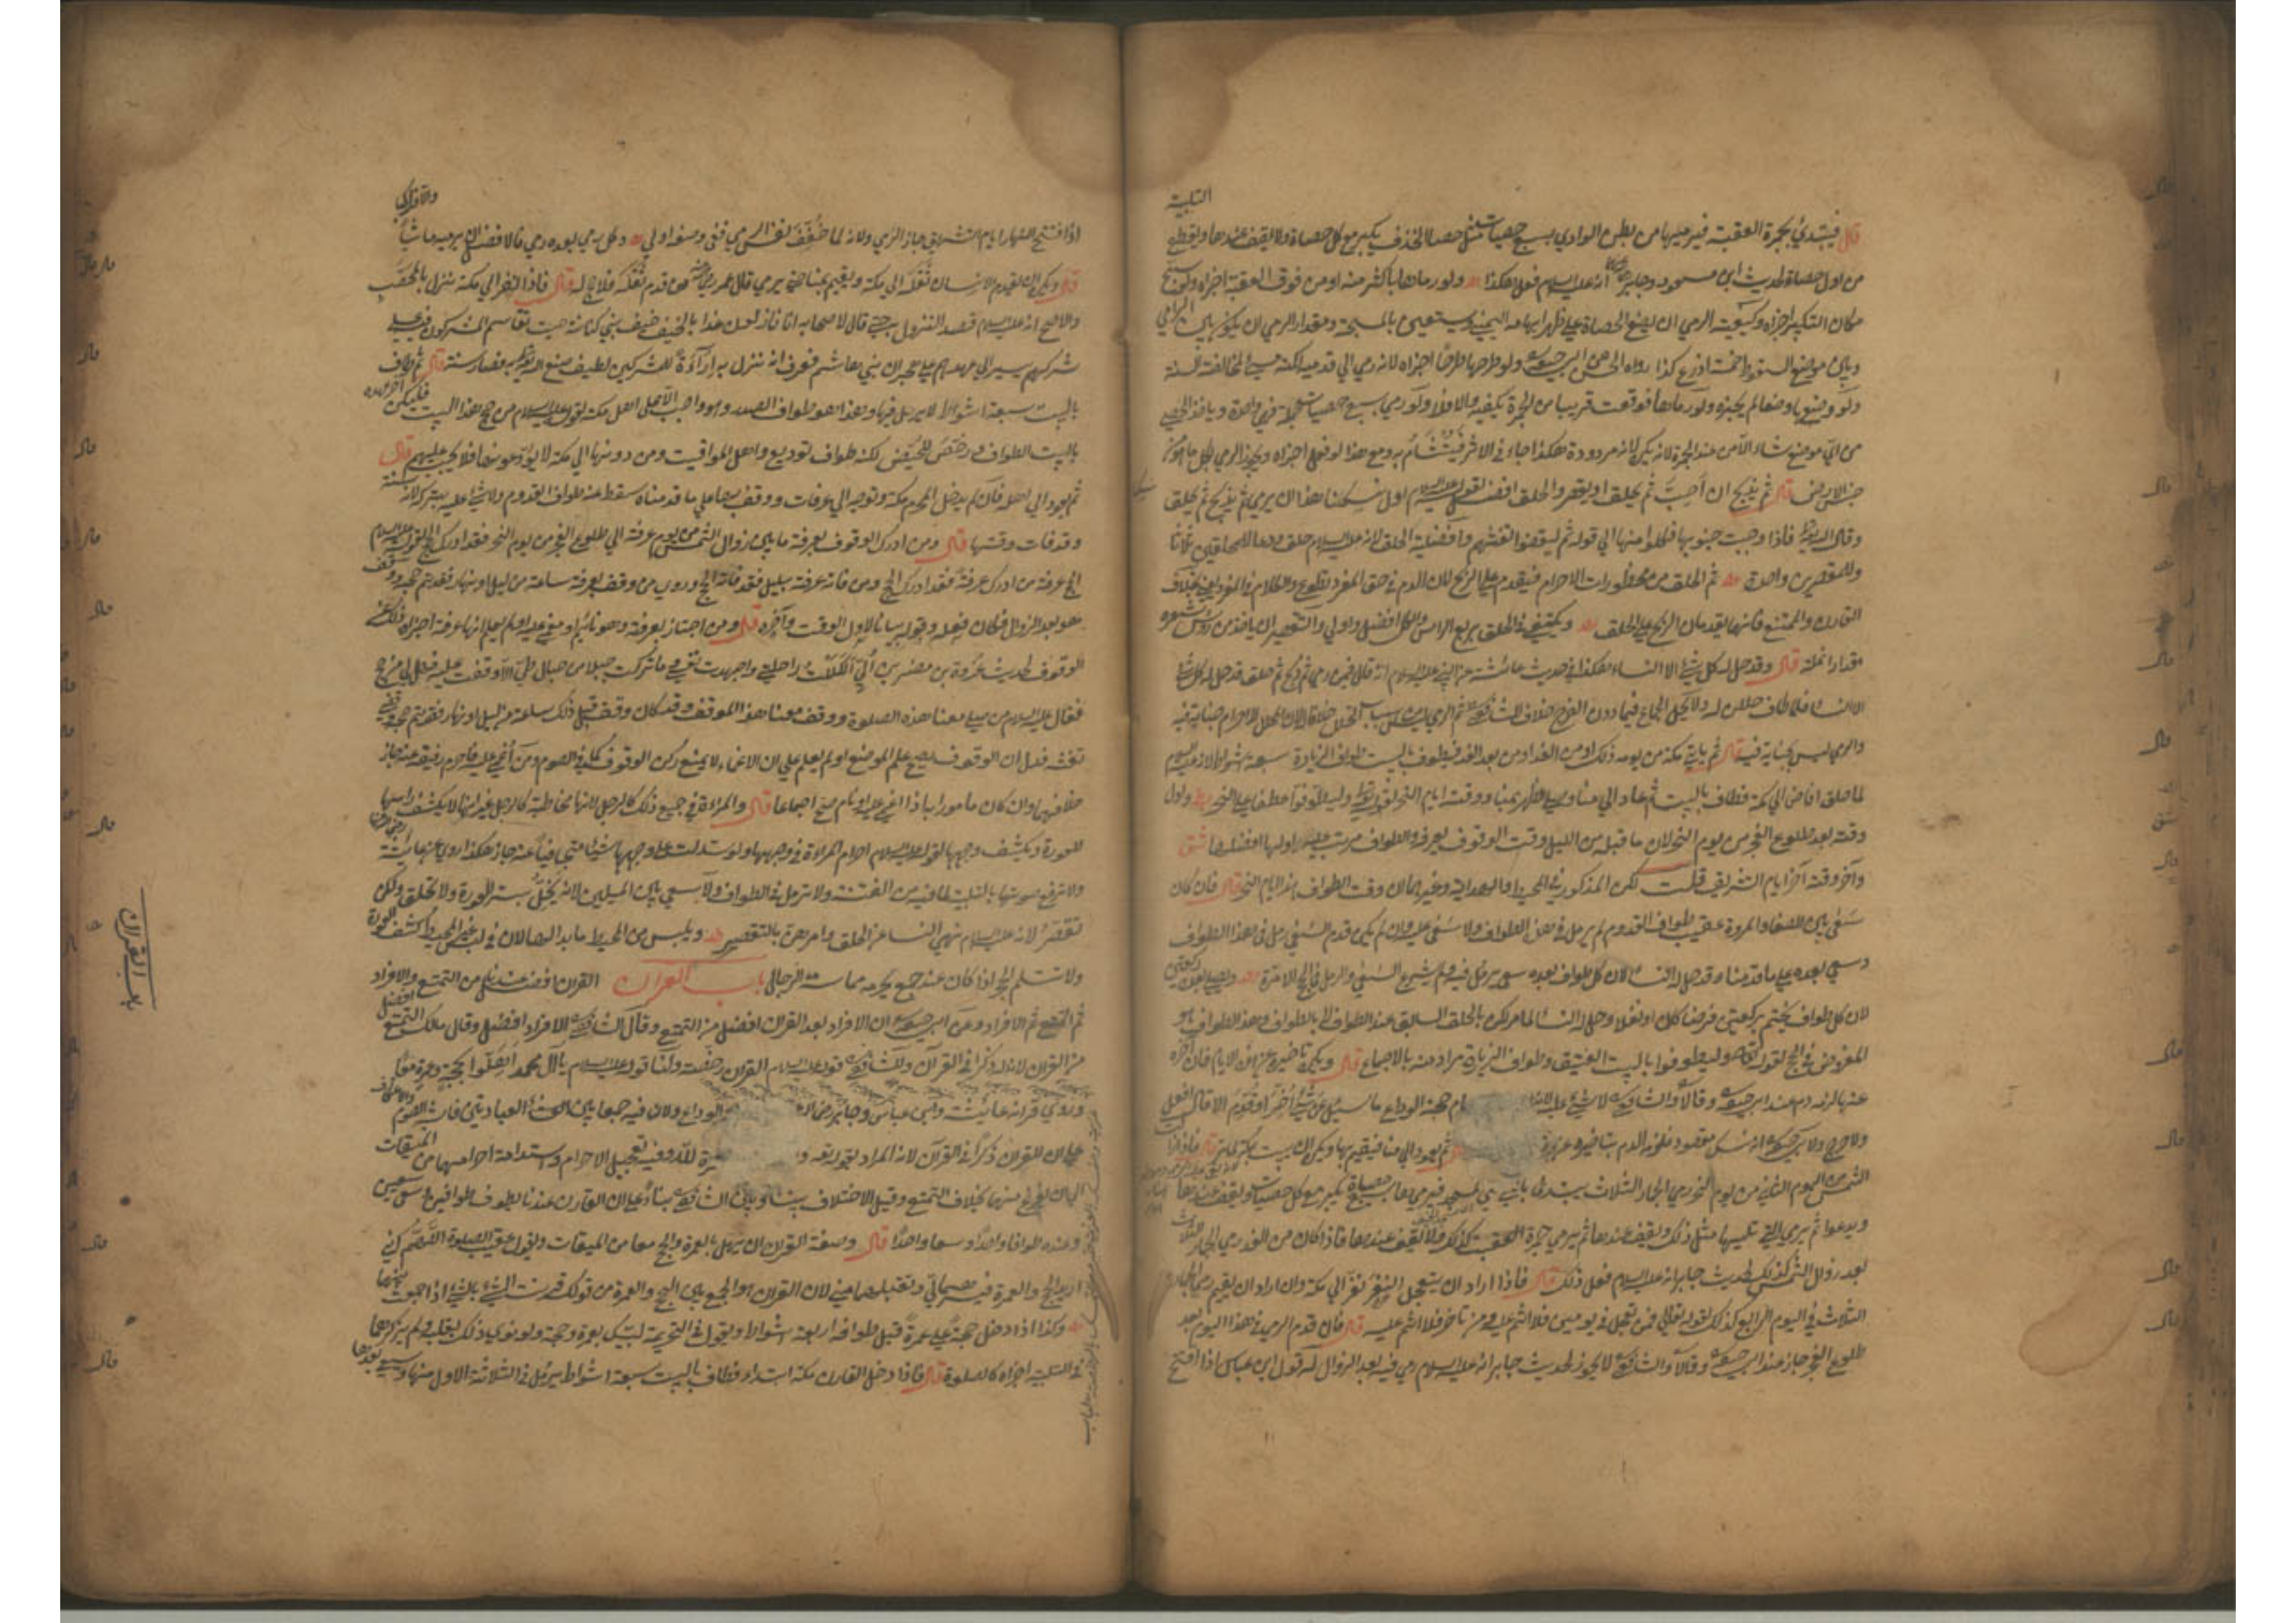 التلبية
قال فيبتدئ بجمرة العقبة فيرميها من بطن الوادي بسبع حصيات مثل حصا الخذف يكبر مع كل حصاة ولا يقف عندها ويقطع
من اول حصاة لحديث ابن مسعود وجابر انه عليه السلام فعل هكذا ولو رماها باكثر منه او من فوق العقبة اجزاه ولو سبح
مكان التكبير اجزاه وكيفية الرمي ان يضع الحصاة على ظهر ابهامه اليمنى ويستعين بالمسبحة ومقدار الرمي ان يكون بين الرامي
وبين موضع السقوط خمسة اذرع كذا رواه الحسن عن ابي حنيفة ولو طرحها طرحا اجزاه لانه رمي الى قدميه لكنه مسيء لمخالفته السنة
ولو وضعها وضعا لم يجزه ولو رماها فوقعت قريبا من الجمرة يكفيه والا فلا ولو رمى بسبع حصيات جملة فهي واحدة وياخذ الحصى
من اي موضع شاء الا من عند الجمرة لانه يكره لانه مردودة هكذا جاء في الاثر فيتشأم به ومع هذا لو فعل اجزاه ويجوز الرمي بكل ما هو من
جنس الارض قال ثم يذبح ان احب ثم يحلق او يقصر والحلق افضل لقوله عليه السلام اول نسكنا هذا ان يرمي ثم يذبح ثم يحلق
وقال الله تعالى فاذا وجبت جنوبها فكلوا منها الى قوله ثم ليقضوا تفثهم وافضلية الحلق لانه عليه السلام حلق ودعا للمحلقين ثلاثا
وللمقصرين واحدة ثم الحلق من محظورات الاحرام فيقدم عليه الذبح لان الدم في حق المفرد تطوع والكلام في المفرد بخلاف
القارن والمتمتع فانهما يقدمان الذبح على الحلق ويكتفي في الحلق بربع الراس والكل افضل واولى والتقصير ان ياخذ من رؤس شعره
مقدار انملة قال وقد حل له كل شيء الا النساء هكذا في حديث عائشة عن النبي عليه السلام انه قال فيمن رمى ثم ذبح ثم حلق قد حل له كل شيء
الا النساء فلما طاف حللن له ولا يحل الجماع فيما دون الفرج خلافا للشافعي ثم الرمي ليس بسبب التحلل خلافا لان المحلل للاحرام جناية فيه
والرمي ليس بجناية فيه قال ثم ياتي مكة من يومه ذلك او من الغد او من بعد الغد فيطوف بالبيت طواف الزيارة سبعة اشواط لانه عليه السلام
لما حلق افاض الى مكة فطاف بالبيت ثم عاد الى منا وصلى الظهر بمنا ووقته ايام النحر لقوله تعالى وليطوفوا عطفا على النحر واول
وقته بعد طلوع الفجر من يوم النحر لان ما قبله من الليل وقت الوقوف بعرفة والطواف مرتب عليه واولها افضلها
وآخر وقته آخر ايام التشريق قلت لكن المذكور في المحيط والهداية وغيرهما ان وقت الطواف هذه ايام النحر قال فان كان
سعى بين الصفا والمروة عقيب طواف القدوم لم يرمل في هذا الطواف ولا سعى عليه وان لم يكن قدم السعي رمل في هذا الطواف
وسعى بعده على ما قدمنا وقد حل له النساء لان كل طواف بعده سعي يرمل فيه ولم يشرع السعي والرمل في الحج الا مرة ويصلي بعده ركعتين
لان كل طواف يختم بركعتين فرضا كان او نفلا وحل له النساء لما مر لكن بالحلق السابق عند الطواف لا بالطواف وهذا الطواف هو
المفروض في الحج لقوله تعالى وليطوفوا بالبيت العتيق وطواف الزيارة مراد منه بالاجماع قال ويكره تاخيره عن هذه الايام فان اخره
عنها لزمه دم عند ابي حنيفة وقالا والشافعي لا شيء عليه لانه عام حجة الوداع ما سئل عن شيء اخر او قدم الا قال افعل
ولا حرج ولا بي حنيفة انه نسك مقصود فلزمه الدم بتاخيره ثم يعود الى منا فيقيم بها ويكره ان يبيت بمكة قال فاذا زالت
الشمس من اليوم الثاني من يوم النحر رمى الجمار الثلاث يبتدئ بالتي تلي المسجد فيرميها بسبع حصيات يكبر مع كل حصاة ويقف عندها
ويدعوا ثم يرمي التي تليها مثل ذلك ويقف عندها ثم يرمي جمرة العقبة كذلك ولا يقف عندها فاذا كان من الغد رمى الجمار الثلاث
بعد زوال الشمس كذلك لحديث جابر انه عليه السلام فعل ذلك قال فاذا اراد ان يتعجل النفر نفر الى مكة وان اراد ان يقيم رمى الجمار
الثلاث في اليوم الرابع كذلك لقوله تعالى فمن تعجل في يومين فلا اثم عليه ومن تاخر فلا اثم عليه قال فان قدم الرمي في هذا اليوم بعد
طلوع الفجر جاز عند ابي حنيفة وقالا والشافعي لا يجوز لحديث جابر انه عليه السلام رمى فيه بعد الزوال له قول ابن عباس اذا افتتح
اذا افتتح النهار ايام التشريق جاز الرمي ولانه لما خفف نفس الرمي ففي وصفه اولى وكل رمي بعده رمي فالافضل ان يرميه ماشيا
والا فراكبا
قال ويكره ان يقدم الانسان ثقله الى مكة ويقيم بمنا حتى يرمي قال عمر من قدم ثقله فلا حج له قال فاذا نفر الى مكة نزل بالمحصب
والاصح انه عليه السلام قصد النزول به حتى قال لاصحابه انا نازلون غدا بالخيف خيف بني كنانة حيث تقاسم المشركون فيه على
شركهم يشير الى عهدهم على هجران بني هاشم فعرف انه نزل به اراءة للمشركين لطيف صنع الله تعالى به فصار سنة قال ثم طاف
بالبيت سبعة اشواط لا يرمل فيها وهذا هو طواف الصدر وهو واجب الا على اهل مكة لقوله عليه السلام من حج هذا البيت فليكن آخر عهده
بالبيت الطواف ورخص للحيض لكنه طواف توديع واهل المواقيت ومن دونها الى مكة لا يودعونها فلا يجب عليهم قال
ثم يعود الى اهله فان لم يدخل المحرم مكة وتوجه الى عرفات ووقف بها على ما قدمناه سقط عنه طواف القدوم ولا شيء عليه بتركه لانه سنة
وقد فات وقتها قال ومن ادرك الوقوف بعرفة ما بين زوال الشمس من يوم عرفة الى طلوع الفجر من يوم النحر فقد ادرك الحج لقوله عليه السلام
الحج عرفة من ادرك عرفة فقد ادرك الحج ومن فاته عرفة بليل فقد فاته الحج وروي من وقف بعرفة ساعة من ليل او نهار فقد تم حجه ووقف
هو بعد الزوال فكان فعله وقوله بيانا لاول الوقت وآخره قال ومن اجتاز بعرفة وهو نائم او مغمى عليه او لم يعلم انها عرفة اجزاه ذلك عن
الوقوف لحديث عروة بن مضرس اني اكللت راحلتي واجهدت نفسي ما تركت جبلا من جبال طي الا وقفت عليه فهل لي من حج
فقال عليه السلام من صلى معنا هذه الصلوة ووقف معنا هذا الموقف وقد كان وقف قبل ذلك ساعة من ليل او نهار فقد تم حجه وقضى
تفثه فدل ان الوقوف يصح علم الموضع او لم يعلم على ان الاغماء لا يمنع ركن الوقوف كما في الصوم ومن أغمي عليه فاحرم رفيقه عنه جاز
خلافهما وان كان مامورا بما اذا اغمي عليه او نام صح اجماعا قال والمراة في جميع ذلك كالرجل لانها مخاطبة كالرجل غير انها لا يكشف راسها
للعورة وتكشف وجهها لقوله عليه السلام احرام المراة في وجهها ولو سدلت على وجهها شيئا متجافيا عنه جاز هكذا روي عن عائشة
ولا ترفع صوتها بالتلبية لما فيه من الفتنة ولا ترمل في الطواف ولا تسعى بين الميلين لانه يخل بستر العورة ولا تحلق ولكن
تقصر لانه عليه السلام نهى النساء عن الحلق وامرهن بالتقصير وتلبس من المخيط ما بدا لها لان في لبس غير المخيط كشف العورة
ولا تستلم الحجر اذا كان عنده جمع تحرمه مماسة الرجال باب القران القران افضل عندنا من التمتع والافراد
ثم التمتع ثم الافراد وعن ابي حنيفة ان الافراد بعد القران افضل من التمتع وقال الشافعي الافراد افضل وقال مالك التمتع افضل
من القران لان له ذكرا في القرآن وللشافعي قوله عليه السلام القران رخصة ولنا قوله عليه السلام يا آل محمد اهلوا بحجة وعمرة معا
وروي قرانه عائشة وابن عباس وجابر الوداع ولان فيه جمعا بين العبادتين فاشبه الصوم والاعتكاف
على ان للقران ذكرا في القرآن لانه المراد بقوله والعمرة لله وفيه تعجيل الاحرام واستدامة احرامهما من الميقات
الى ان يفرغ منهما بخلاف التمتع وقيل الاختلاف بيننا وبين الشافعي بناء على ان القارن عندنا يطوف طوافين ويسعى سعيين
وعنده طوافا واحدا وسعيا واحدا قال وصفة القران ان يهل بالعمرة والحج معا من الميقات ويقول عقيب الصلوة اللهم اني
اريد الحج والعمرة فيسرهما لي وتقبلهما مني لان القران هو الجمع بين الحج والعمرة من قولك قرنت الشيء بالشيء اذا جمعت بينهما
وكذا اذا ادخل حجة على عمرة قبل طوافه اربعة اشواط ويقول في التحريمة لبيك بعمرة وحجة ولو نوى ذلك بقلبه ولم يذكرهما
في التلبية اجزاه كالصلوة قال فاذا دخل القارن مكة ابتداء فطاف بالبيت سبعة اشواط يرمل في الثلاثة الاول منها ويسعى بعدها
باب القران